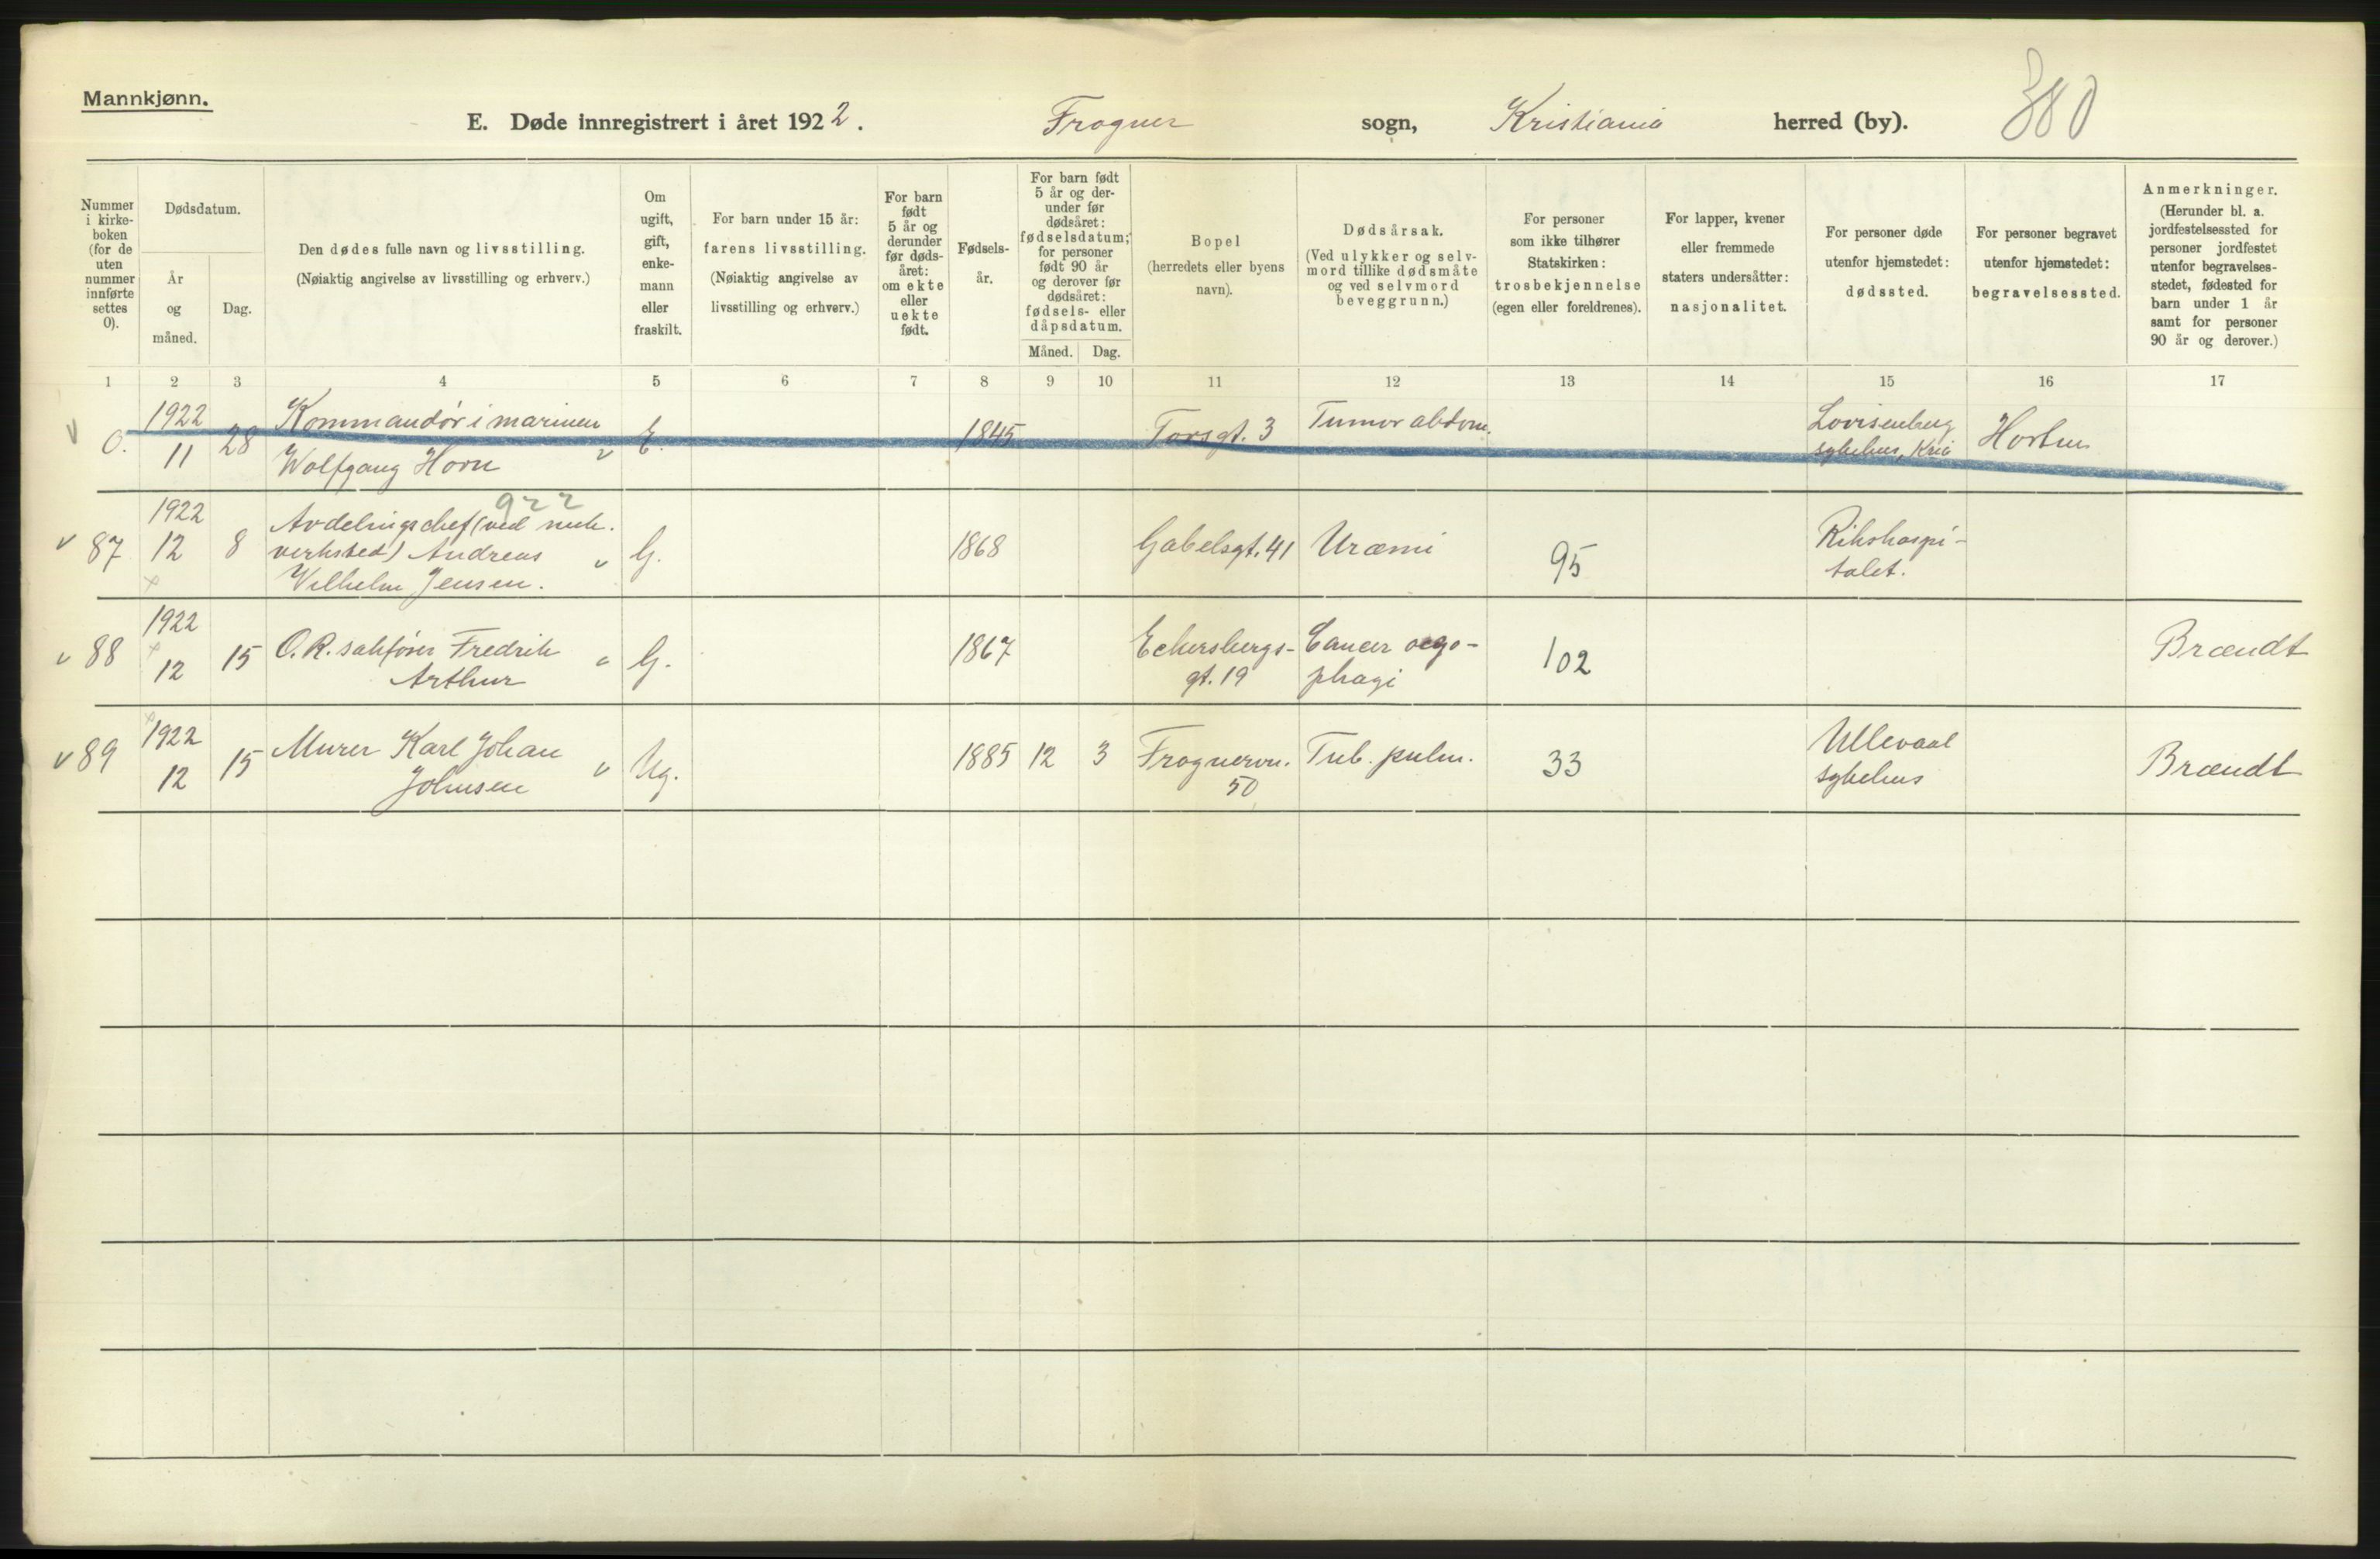 Mannkjønn.
E. Døde innregistrert i året 1922. Frogner sogn, Kristiania herred (by). 380
Nummer i kirke- boken (for de uten nummer innførte settes 0).
Dødsdatum.
År og måned.
Dag.
Den dødes fulle navn og livsstilling.
(Nøiaktig angivelse av livsstilling og erhverv.)
Om ugift, gift, enke- mann eller fraskilt.
For barn under 15 år:
farens livsstilling.
(Nøiaktig angivelse av
livsstilling og erhverv.)
For barn født 5 år og derunder før døds- året: om ekte eller uekte født.
Fødsels- år.
For barn født 5 år og der- under før dødsåret: fødselsdatum; for personer født 90 år og derover før dødsåret: fødsels- eller dåpsdatum.
Måned. Dag.
Bopel
(herredets eller byens
navn).
Dødsårsak.
(Ved ulykker og selv-
mord tillike dødsmåte
og ved selvmord
beveggrunn.)
For personer
som ikke tilhører
Statskirken:
trosbekjennelse
(egen eller foreldrenes).
For lapper, kvener
eller fremmede
staters undersåtter:
nasjonalitet.
For personer døde
utenfor hjemstedet:
dødssted.
For personer begravet
utenfor hjemstedet:
begravelsessted.
Anmerkninger.
(Herunder bl. a.
jordfestelsessted for
personer jordfestet
utenfor begravelses-
stedet, fødested for
barn under 1 år
samt for personer
90 år og derover.)
1 2 3 4 5 6 7 8 9 10 11 12 13 14 15 16 17
v 0. 1922 11 28 Kommandör i marinen
Wolfgang Horn v E. 1845 Torsgt. 3 Tumor abdom. Lovisenberg
sykehus, Kria Horten
922
v 87 1922 12 8 Avdelingschef (ved mek.
verksted) Andreas
Vilhelm Jensen. v G. 1868 Gabelsgt. 41 Uræmi 95 Rikshospi-
talet.
v 88 1922 12 15 O.R.sakfører Fredrik
Arthur G. 1867 Eckersbergs-
gt. 19 Cancer oego-
phagi 102 Brændt
v 89 1922 12 15 Murer Karl Johan
Johnsen v Ug. 1885 12 3 Frognervn.
50 Tub. pulm. 33 Ullevaal
sykehus Brændt